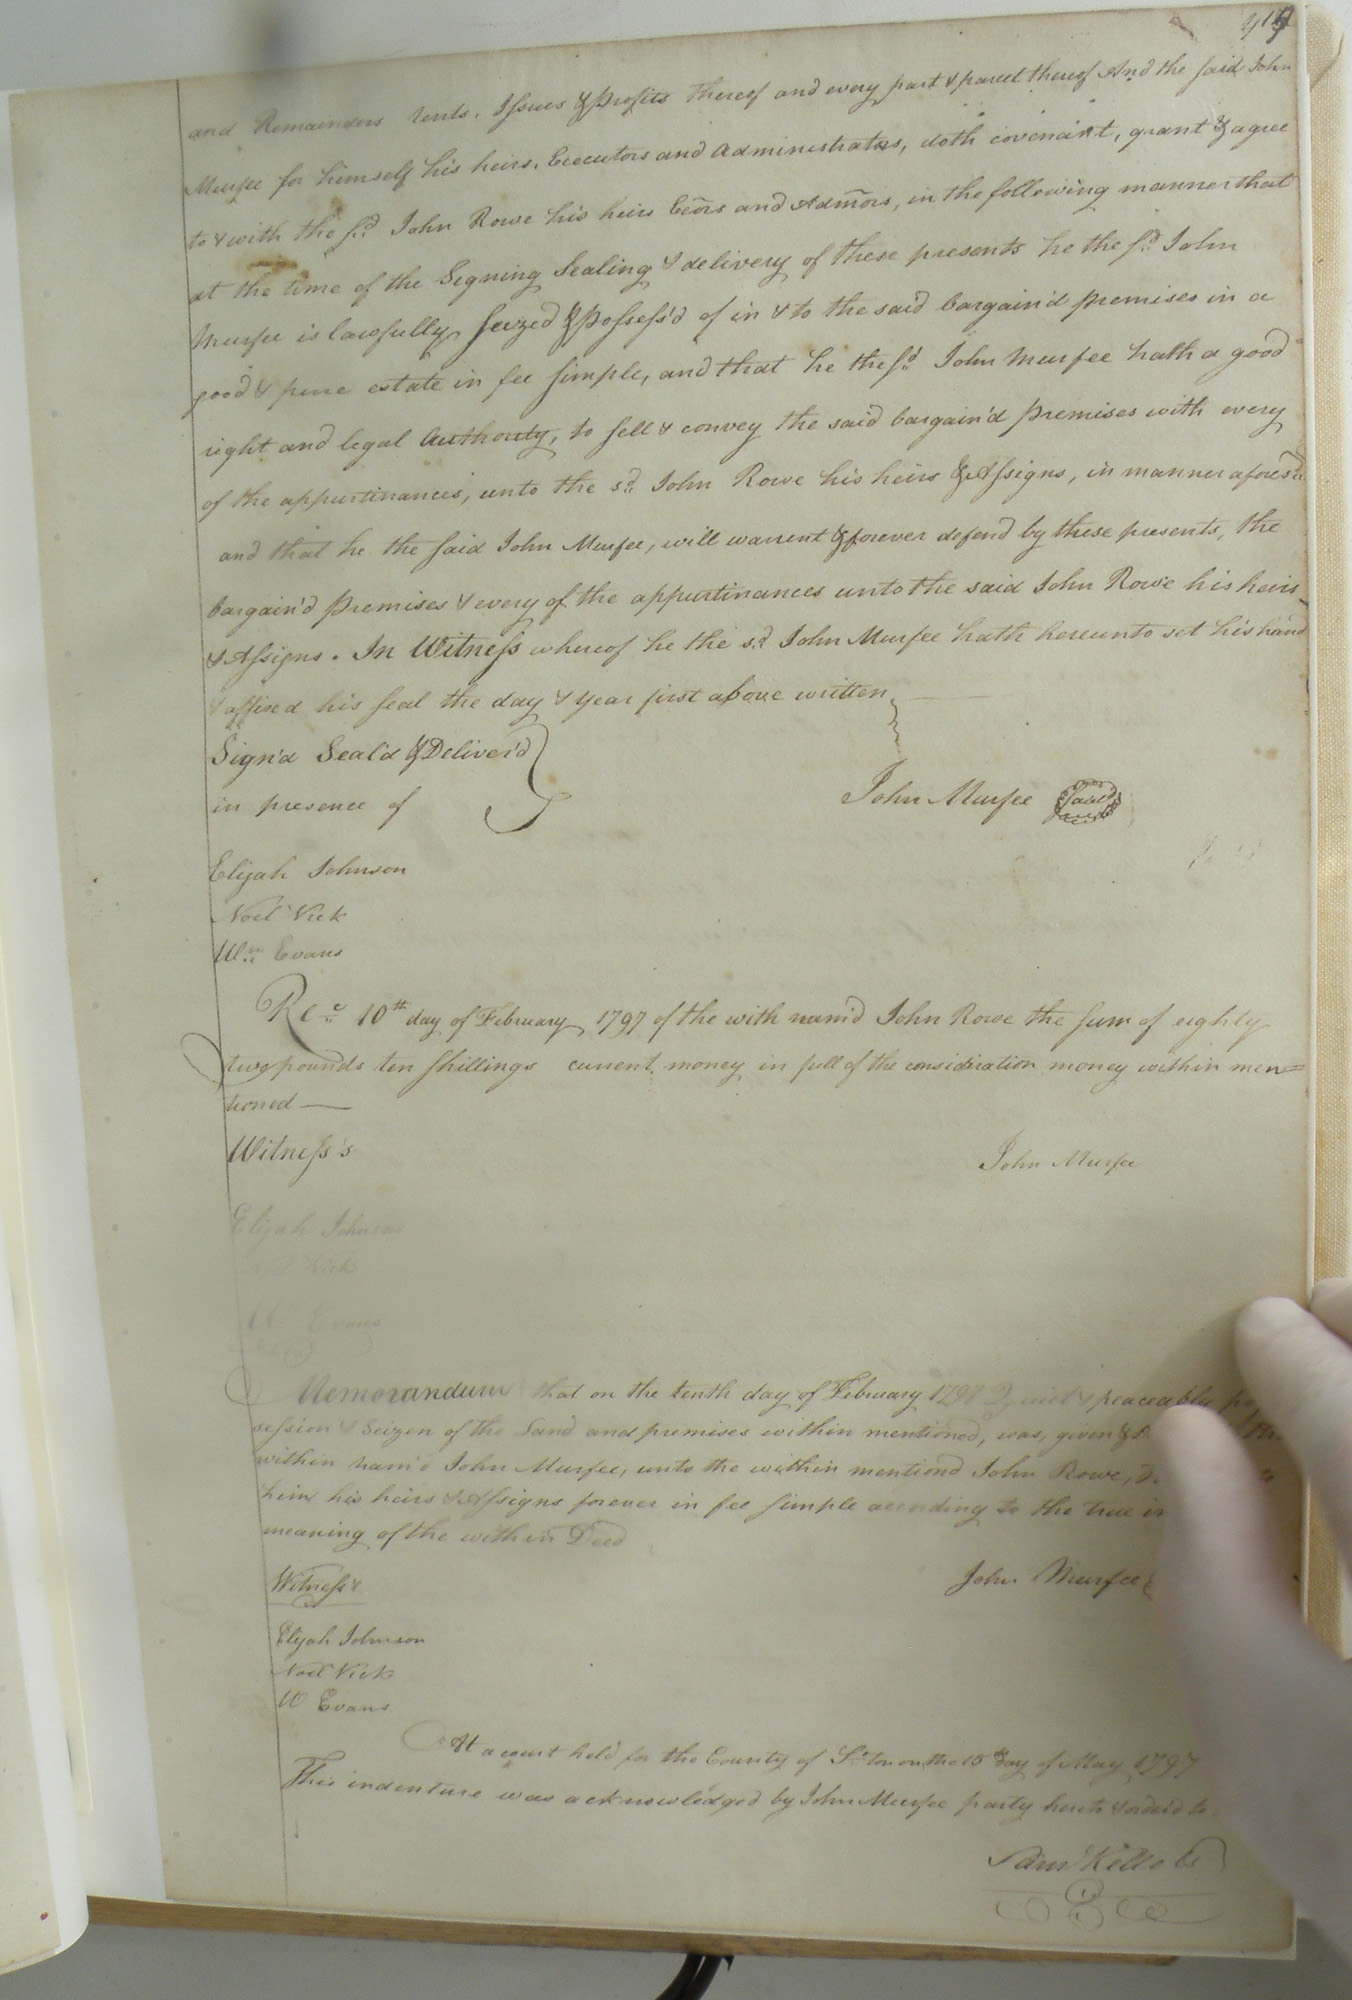 and Remainders rents, Issues & Profits thereof and every part & parcel thereof And the said John
Murfee for himself his heirs, Executors and Administrators, doth covenant, grant & agree
to & with the sd. John Rowe his heirs Exors and Admors, in the following manner that
at the time of the Signing Sealing & delivery of these presents he the sd. John
Murfee is lawfully Seized & Possess'd of in & to the said bargain'd premises in a
good & pure estate in fee simple, and that he the sd. John Murfee hath a good
right and legal Authority, to sell & convey the said bargain'd premises with every
of the appurtinances, unto the sd. John Rowe his heirs & Assigns, in manner aforesd.
and that he the said John Murfee, will warrent & forever defend by these presents, the
bargain'd premises & every of the appurtinances unto the said John Rowe his heirs
& Assigns. In Witness whereof he the sd. John Murfee hath hereunto set his hand
& affixed his seal the day & year first above written
Sign'd Seal'd & Deliver'd
in presence of
John Murfee (Seal)
Elijah Johnson
Noel Vick
Wm. Evans
Rec. 10th day of February 1797 of the with nam'd John Rowe the sum of eighty
two pounds ten shillings current money in full of the consideration money within men=
tioned
Witness's
John Murfee
Elijah Johnson
Vick
W Evans
Memorandum that on the tenth day of February 1797 Quiet & peaceable
session & Seizen of the Land and premises within mentioned, was, given &
within nam'd John Murfee, unto the within mentiond John Rowe,
him his heirs & Assigns forever in fee simple according to the true
meaning of the within Deed
Witness's
John Murfee
Elijah Johnson
Noel Vick
W Evans
At a court held for the County of Ston on the 15 day of May 1797
This indenture was acknowledged by John Murfee party hereto & ordd to
Saml Kello